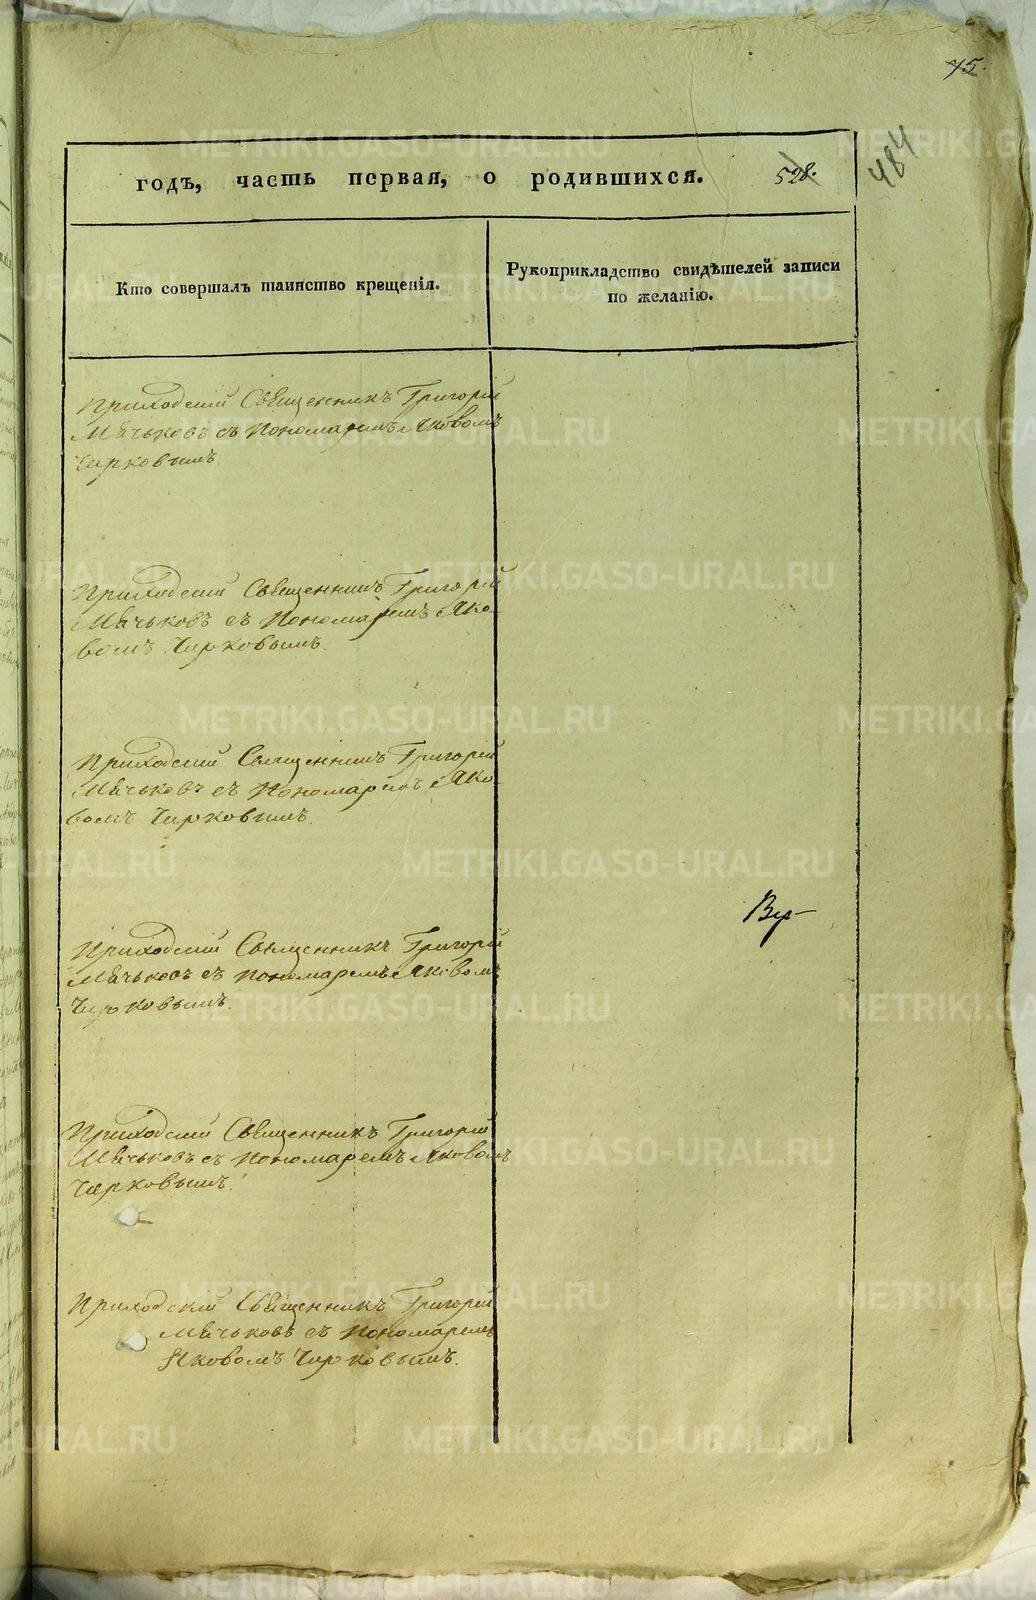 75.
484
годъ, часть первая, о родившихся. 528.
Кто совершалъ таинство крещенія.
Рукоприкладство свидѣтелей записи
по желанію.
Приходскій Священникъ Григорій
Мячьковъ съ Пономаремъ Яковомъ
Чирковымъ
Приходскій Священникъ Григорій
Мячьковъ съ Пономаремъ Яко-
вомъ Чирковымъ.
Приходскій Священникъ Григорій
Мячьковъ съ Пономаремъ Яко-
вомъ Чирковымъ.
Приходскій Священникъ Григорій
Мячьковъ съ Пономаремъ Яковомъ
Чирковымъ.
Приходскій Священникъ Григорій
Мячьковъ съ Пономаремъ Яковомъ
Чирковымъ.
Приходскій Священникъ Григорій
Мячьковъ съ Пономаремъ
Яковомъ Чирковымъ.
METRIKI.GASO-URAL.RU